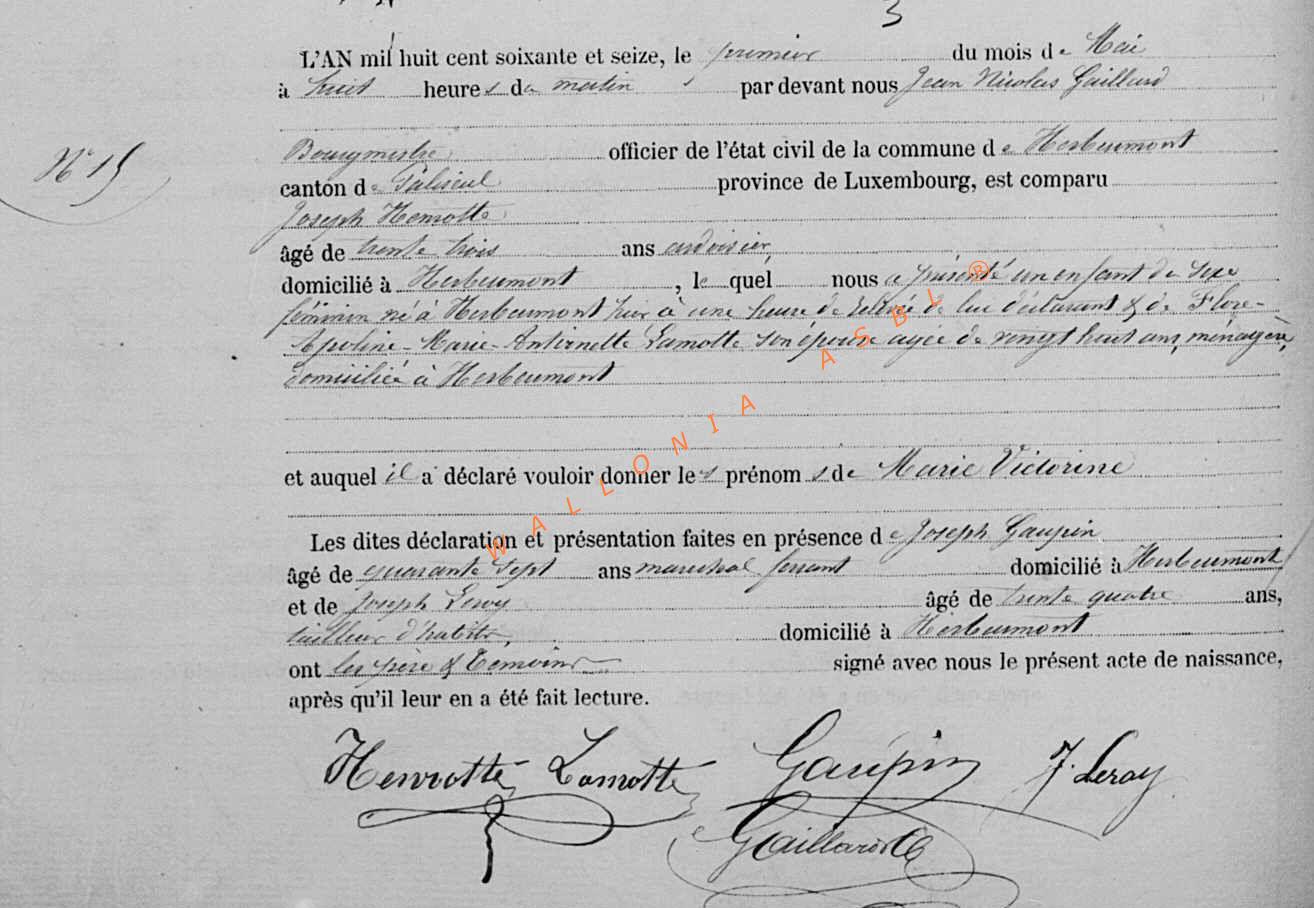 3
L'AN mil huit cent soixante et seize, le premier du mois de Mai
à huit heures du matin par devant nous Jean Nicolas Gaillard
Bourgmestre officier de l'état civil de la commune de Herbeumont
N° 15
canton de Paliseul province de Luxembourg, est comparu
Joseph Henrotte
âgé de trente trois ans ardoisier,
domicilié à Herbeumont, le quel nous a présenté un enfant de sexe
féminin né à Herbeumont hier à une heure de relevée de lui déclarant & de Flore-
Apoline-Marie-Antoinette Lamotte son épouse agée de vingt huit ans, ménagère,
domiciliée à Herbeumont
et auquel il a déclaré vouloir donner les prénoms de Marie Victorine
Les dites déclaration et présentation faites en présence de Joseph Gaupin
âgé de quarante sept ans marechal ferrant domicilié à Herbeumont
et de Joseph Leroy âgé de trente quatre ans,
tailleur d'habits, domicilié à Herbeumont
ont les père & témoins signé avec nous le présent acte de naissance,
après qu'il leur en a été fait lecture.
Henrotte Lamotte Gaupin J. Leroy
Gaillard
WALLONIA ASBL ®